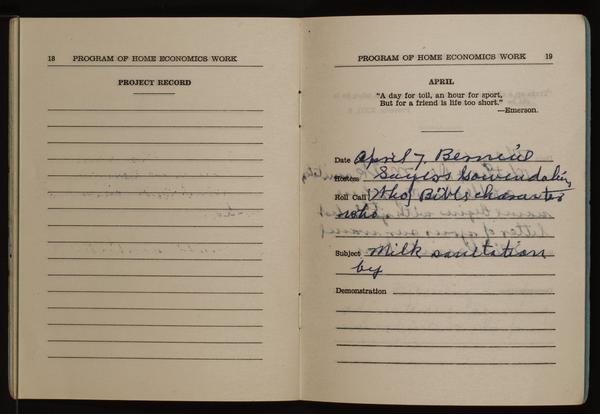 18 PROGRAM OF HOME ECONOMICS WORK
PROJECT RECORD
PROGRAM OF HOME ECONOMICS WORK 19
APRIL
"A day for toil, an hour for sport,
But for a friend is life too short."
—Emerson.
Date April 7,
Hostess
Roll Call Bible character
who
Subject Milk sanitation
by
Demonstration